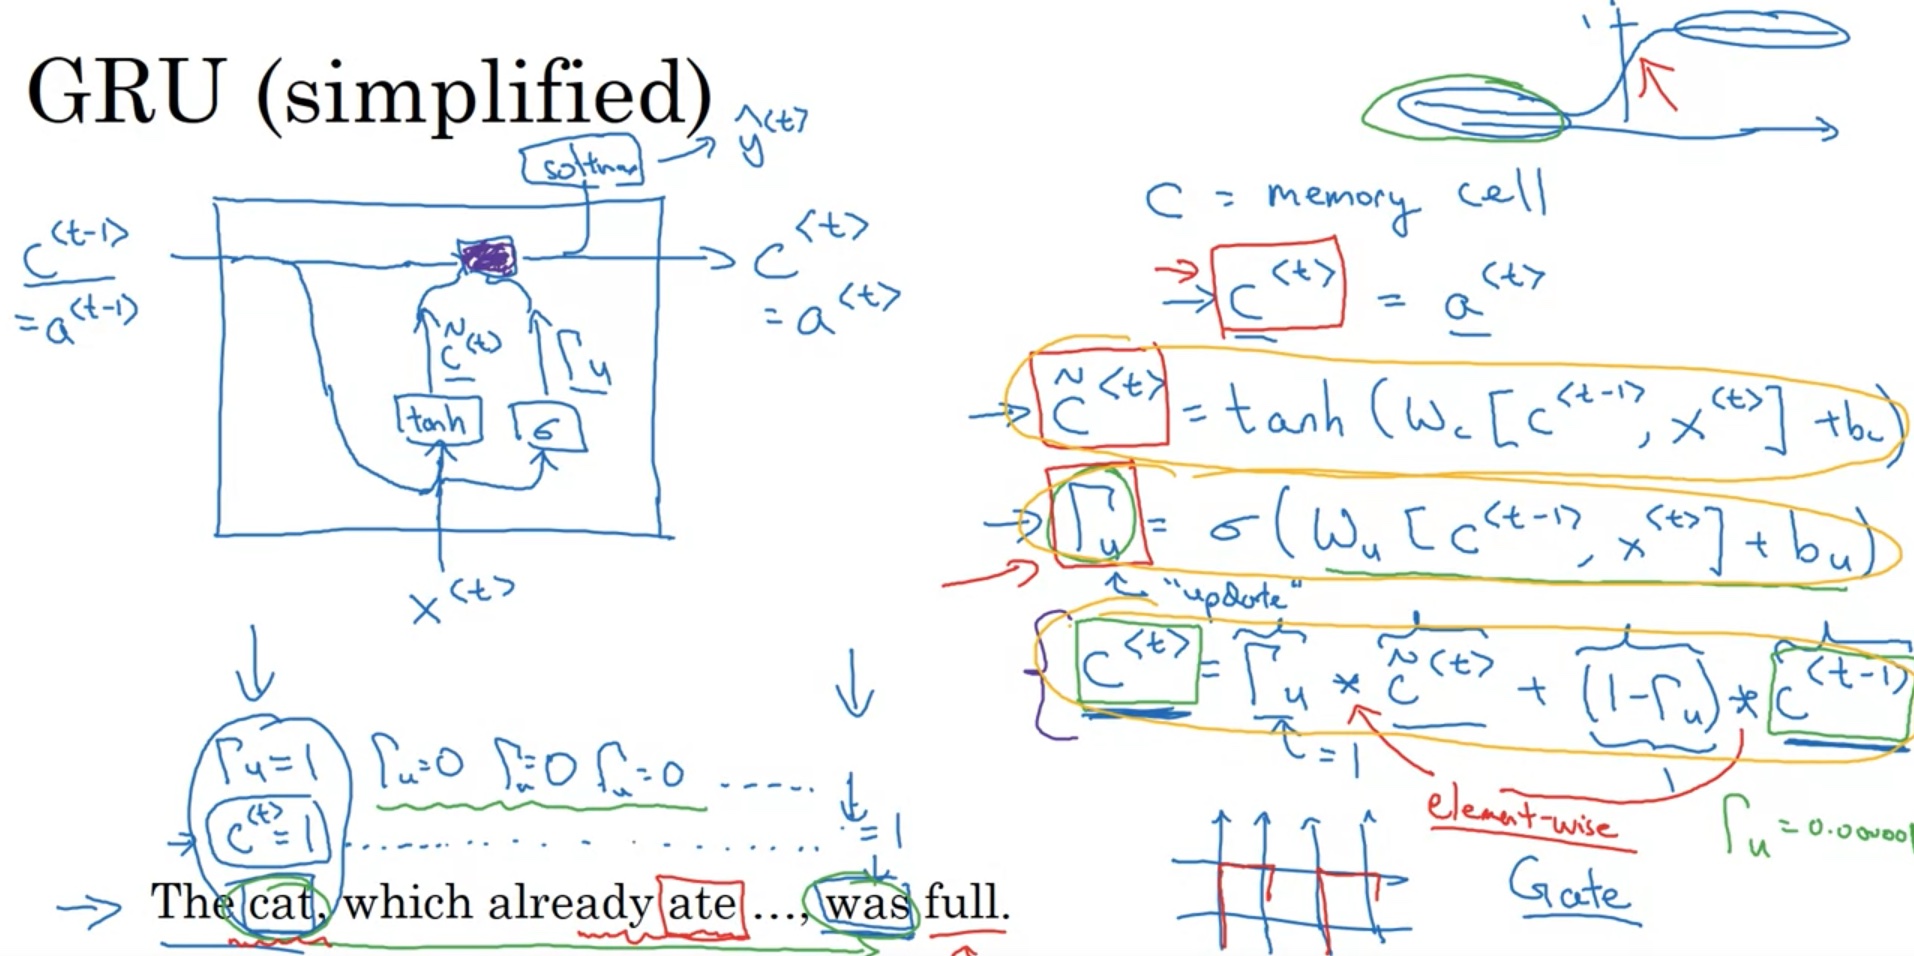 GRU (simplified)
softmax → ŷ<t>
c<t-1>
= a<t-1>
c<t>
= a<t>
c̃<t>
Γu
tanh
σ
x<t>
1
C = memory cell
→ → c<t> = a<t>
→ c̃<t> = tanh (Wc [c<t-1>, x<t>] + bc)
→ Γu = σ (Wu [c<t-1>, x<t>] + bu)
"update"
c<t> = Γu * c̃<t> + (1-Γu) * c<t-1>
= 1
element-wise
Γu = 0.000001
Gate
Γu=1 Γu=0 Γu=0 Γu=0 ......
c<t>=1 .......... =1
→ The cat, which already ate …, was full.